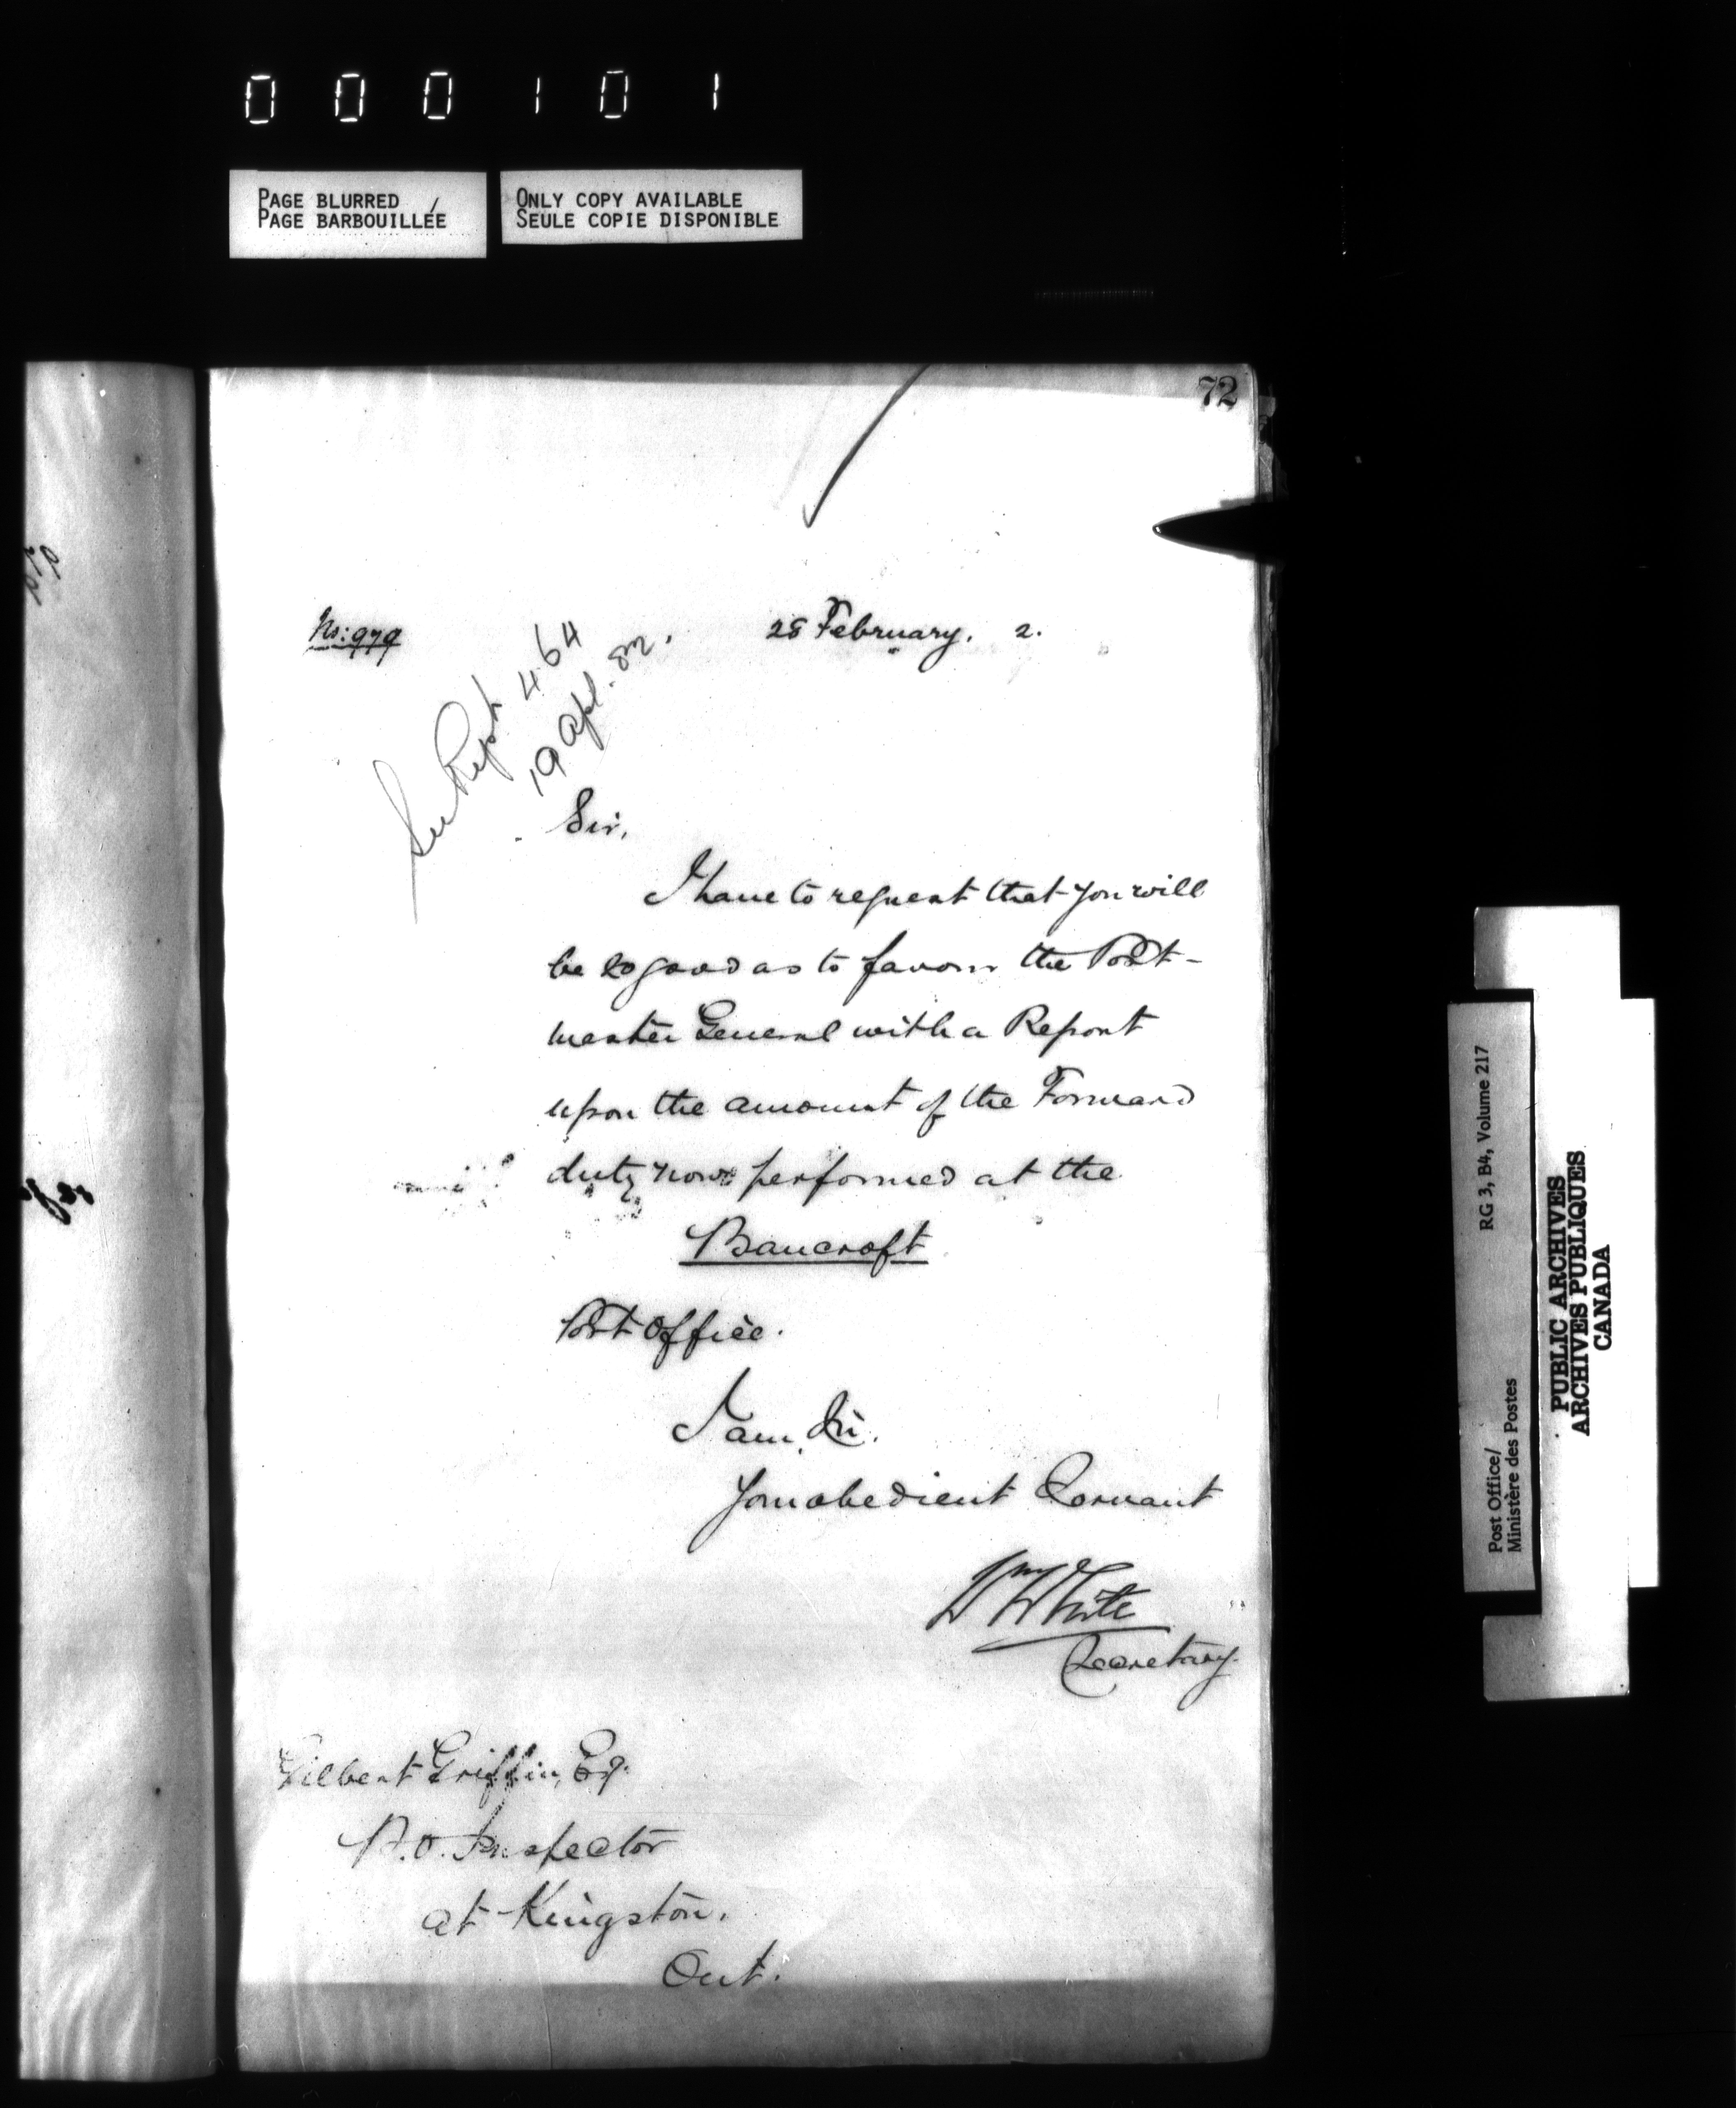 000101
PAGE BLURRED
PAGE BARBOUILLÉE
ONLY COPY AVAILABLE
SEULE COPIE DISPONIBLE
72
No: 979
28 February. 2.
See Rept 464
19 Apl. 82.
Sir,
I have to request that you will
be so good as to favour the Post-
master General with a Report
upon the amount of the Forward
duty now performed at the
Bancroft
Post Office.
I am, Sir,
Your obedient Servant
Wm White
Secretary.
Gilbert Griffin, Esq.
P.O. Inspector
at Kingston.
Ont.
Post Office/
Ministère des Postes
RG 3, B4, Volume 217
PUBLIC ARCHIVES
ARCHIVES PUBLIQUES
CANADA